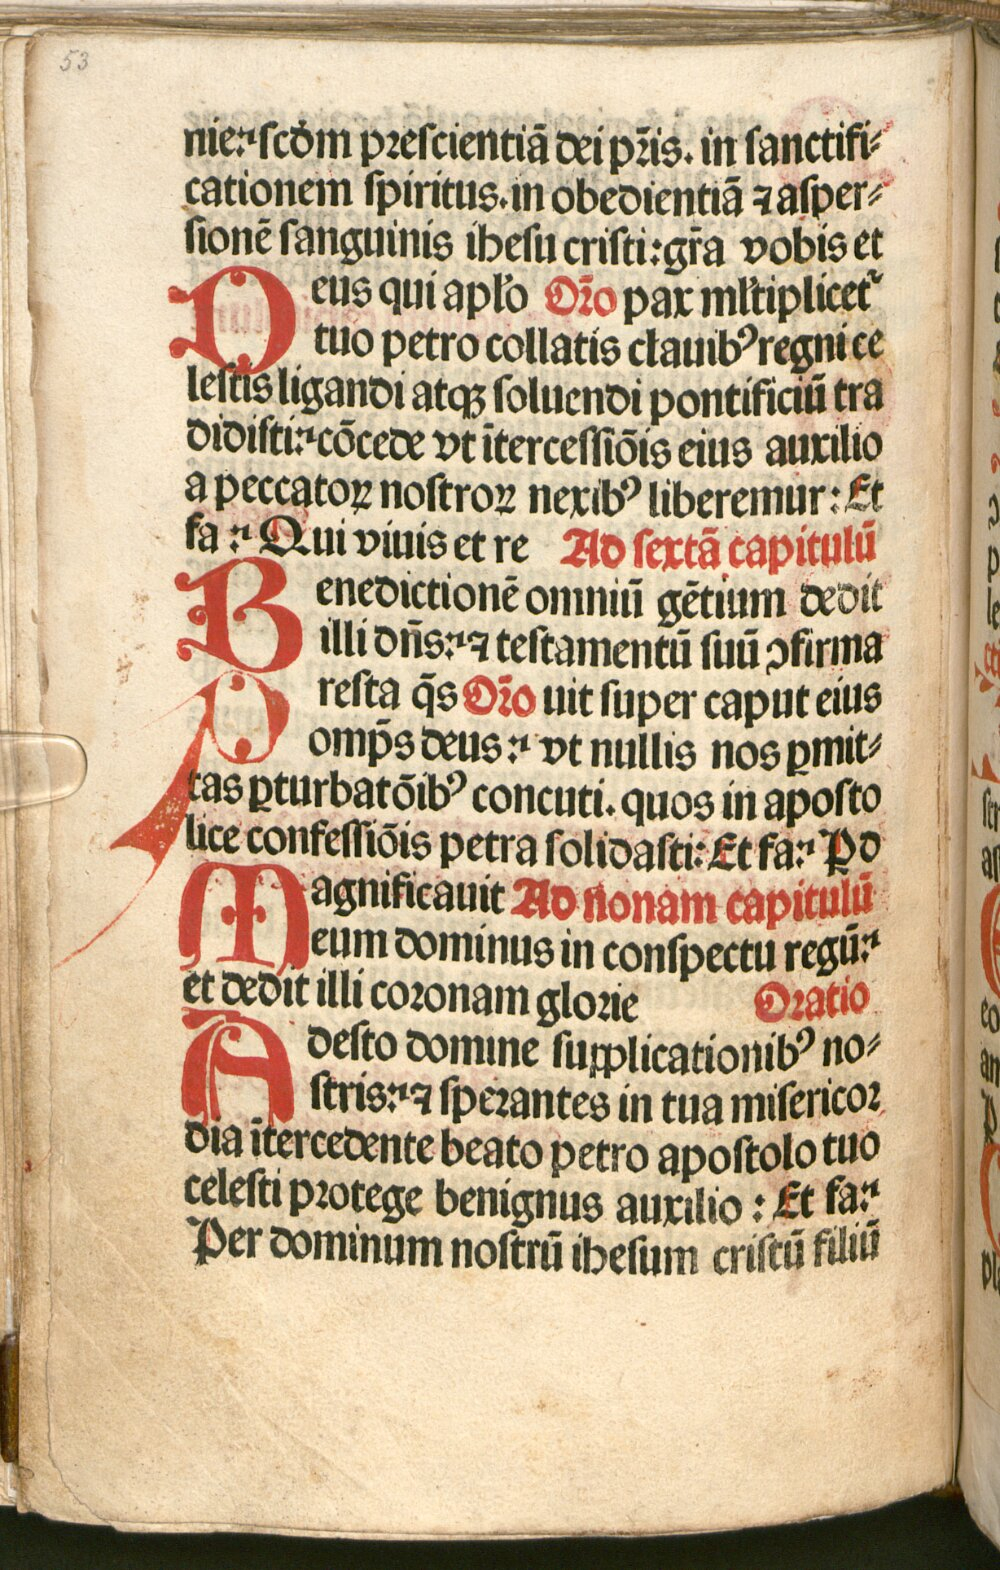 53
nie: scd̄m prescientiā dei pr̄is. in sanctifi-
cationem spiritus. in obedientiā ⁊ asper-
sionē sanguinis ihesu cristi: gr̄a vobis et
Deus qui apl̄o Or̄o pax ml̄tiplicet᷑
tuo petro collatis clauibꝰ regni ce
lestis ligandi atqꝫ soluendi pontificiū tra
didisti: cōcede vt ītercessiōis eius auxilio
a peccatoꝝ nostroꝝ nexibꝰ liberemur: Et
fa: Qui viuis et re Ad sextā capitulū
Benedictionē omniū gētium dedit
illi dn̄s: ⁊ testamentū suū ꝯfirma
Presta q̄s Or̄o uit super caput eius
omp̄s deus: vt nullis nos ꝑmit-
tas ꝑturbatōibꝰ concuti. quos in aposto
lice confessiōis petra solidasti: Et fa: Pd
Magnificauit Ad nonam capitulū
eum dominus in conspectu regū:
et dedit illi coronam glorie Oratio
Adesto domine supplicationibꝰ no-
stris: ⁊ sperantes in tua misericor
dia ītercedente beato petro apostolo tuo
celesti protege benignus auxilio: Et fa:
Per dominum nostrū ihesum cristū filiū